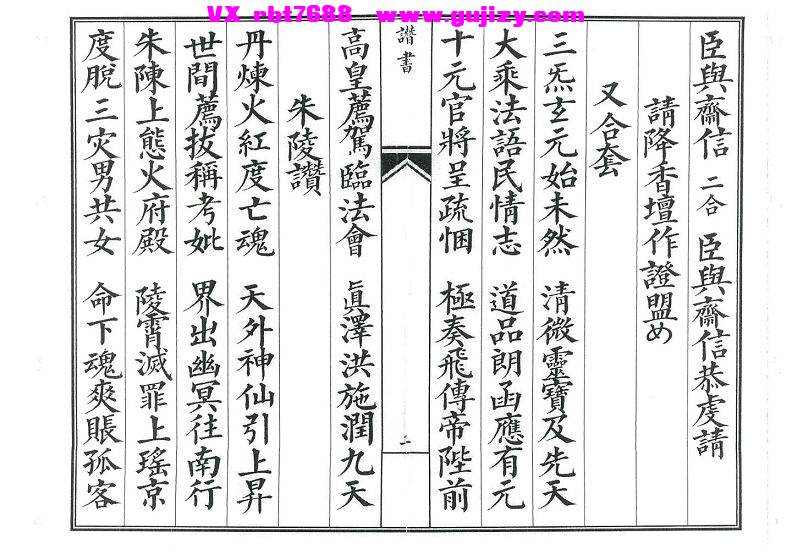 VX rbt7688 www.gujizy.com
臣與齋信 二合 臣與齋信恭虔請
請降香壇作證盟め
又合套
三炁玄元始未然 清微靈寶及先天
大乘法語民情志 道品朗函應有元
十元官將呈疏悃 極奏飛傳帝陛前
讚書
二
高皇薦駕臨法會 眞澤洪施潤九天
朱陵讚
丹煉火紅度亡魂 天外神仙引上昇
世間薦拔稱考妣 界出幽冥往南行
朱陳上態火府殿 陵霄滅罪上瑤京
度脫三灾男共女 命下魂爽賬孤客